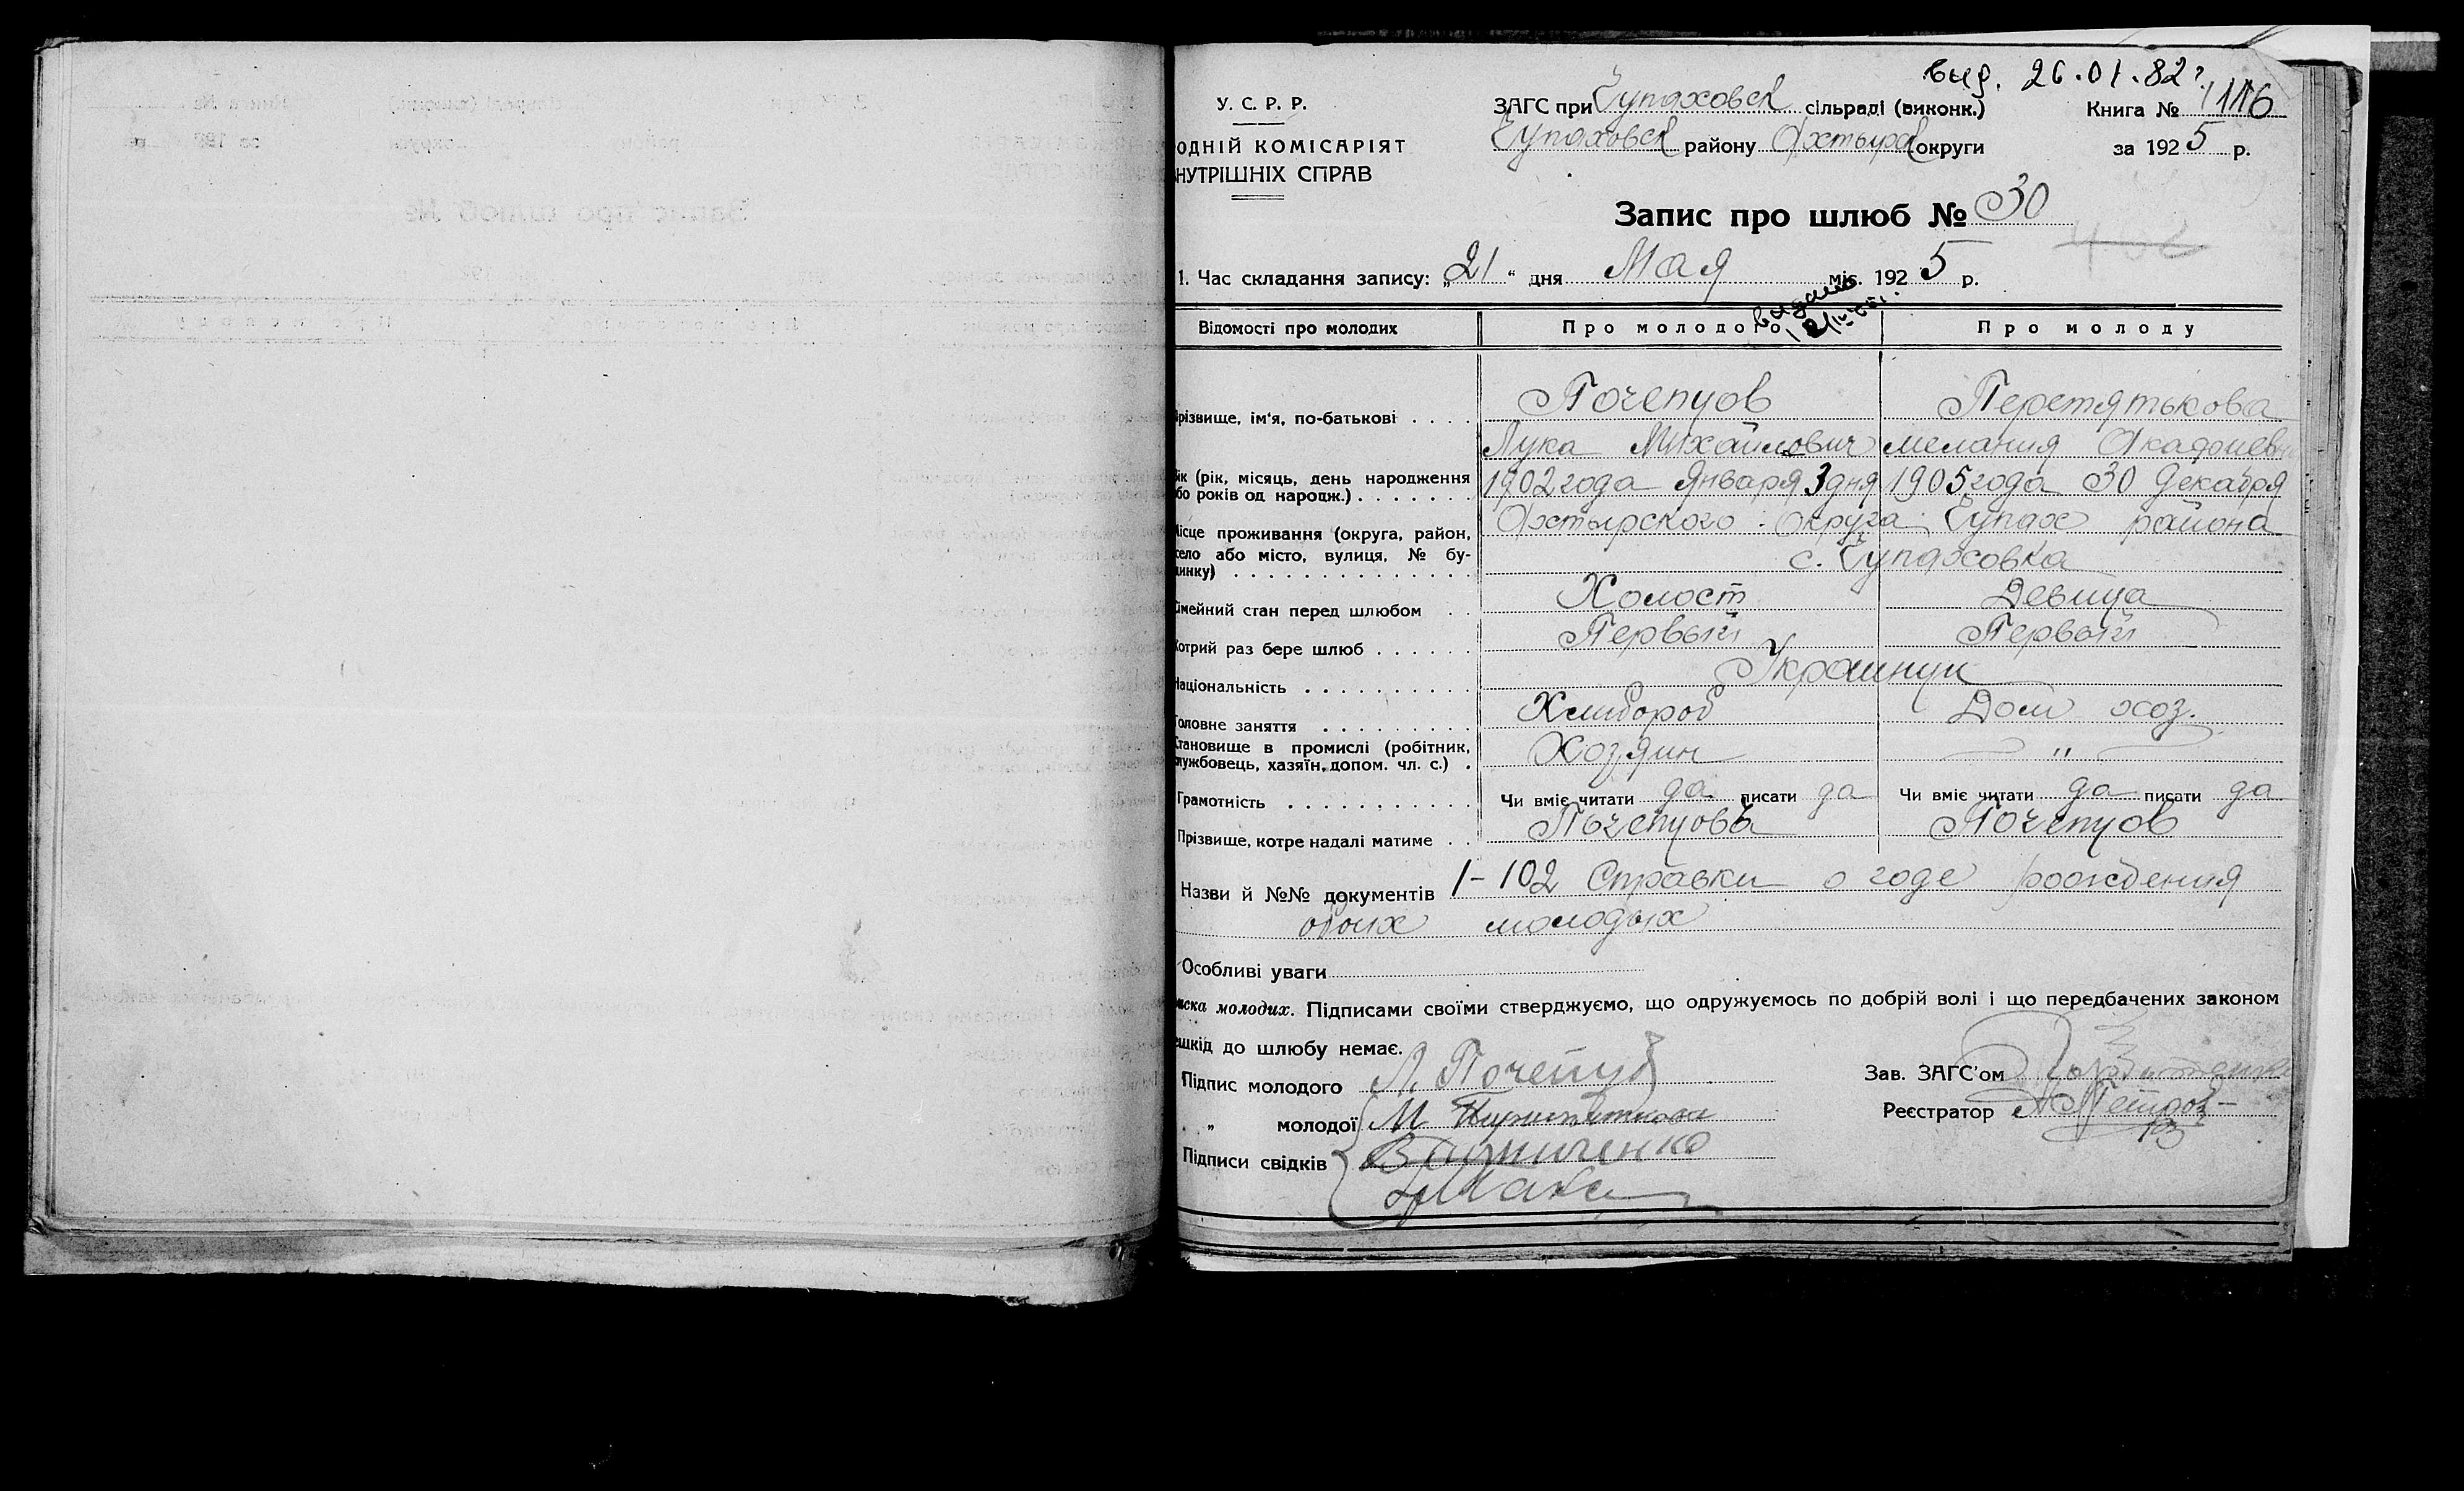 выд. 26.01.82г
У. С. Р. Р. ЗАГС при Чупаховск сільраді (виконк.) Книга № 116
ОДНІЙ КОМІСАРІЯТ Чупаховск району Ахтырск округи за 1925 р.
НУТРІШНІХ СПРАВ
Запис про шлюб № 30
1. Час складання запису: „21“ дня Мая міс. 1925 р.
выдано
Відомості про молодих Про молодого Про молоду
різвище, ім'я, по-батькові . . . . Почепцов Перетятькова
Лука Михайлович мелания Акадоиевна
ік (рік, місяць, день народження 1902 года Января 3 дня 1905 года 30 Декабря
бо років од народж.) . . . . . . .
Ахтырского округа Чупах района
ісце проживання (округа, район,
село або місто, вулиця, № бу- с. Чупаховка
динку) . . . . . . . . . . . . . .
імейний стан перед шлюбом . . Холост Девица
Котрий раз бере шлюб . . . . . . Первый Первый
Національність . . . . . . . . . . Украинцы
Головне заняття . . . . . . . . . Хлибороб Дом хоз.
Становище в промислі (робітник, Хозяин — " —
лужбовець, хазяїн, допом. чл. с.) .
Грамотність . . . . . . . . . . . Чи вміє читати да писати да Чи вміє читати да писати да
Прізвище, котре надалі матиме . . Почепцовъ Почепцов
Назви й №№ документів 1-102 Справки о годе рождения
обоих молодых
Особливі уваги
иска молодих. Підписами своїми стверджуємо, що одружуємось по добрій волі і що передбачених законом
ешкід до шлюбу немає.
Підпис молодого Л. Почепцов Зав. ЗАГС'ом
„ молодої М Перетяткова Реєстратор Петров
Підписи свідків